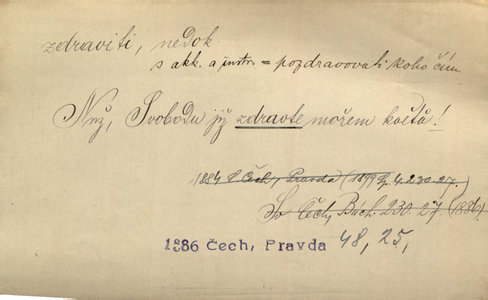 zdraviti, nedok
s akk. a instr. = pozdravovati koho čím
Nuž, Svobodu jÿ zdravte mořem květů!
1884 S Čech, Pravda (1899 Sp. 4. 230. 27.)
Sv Čech, Bách. 230. 27. (1886)
1886 Čech, Pravda 48, 25,